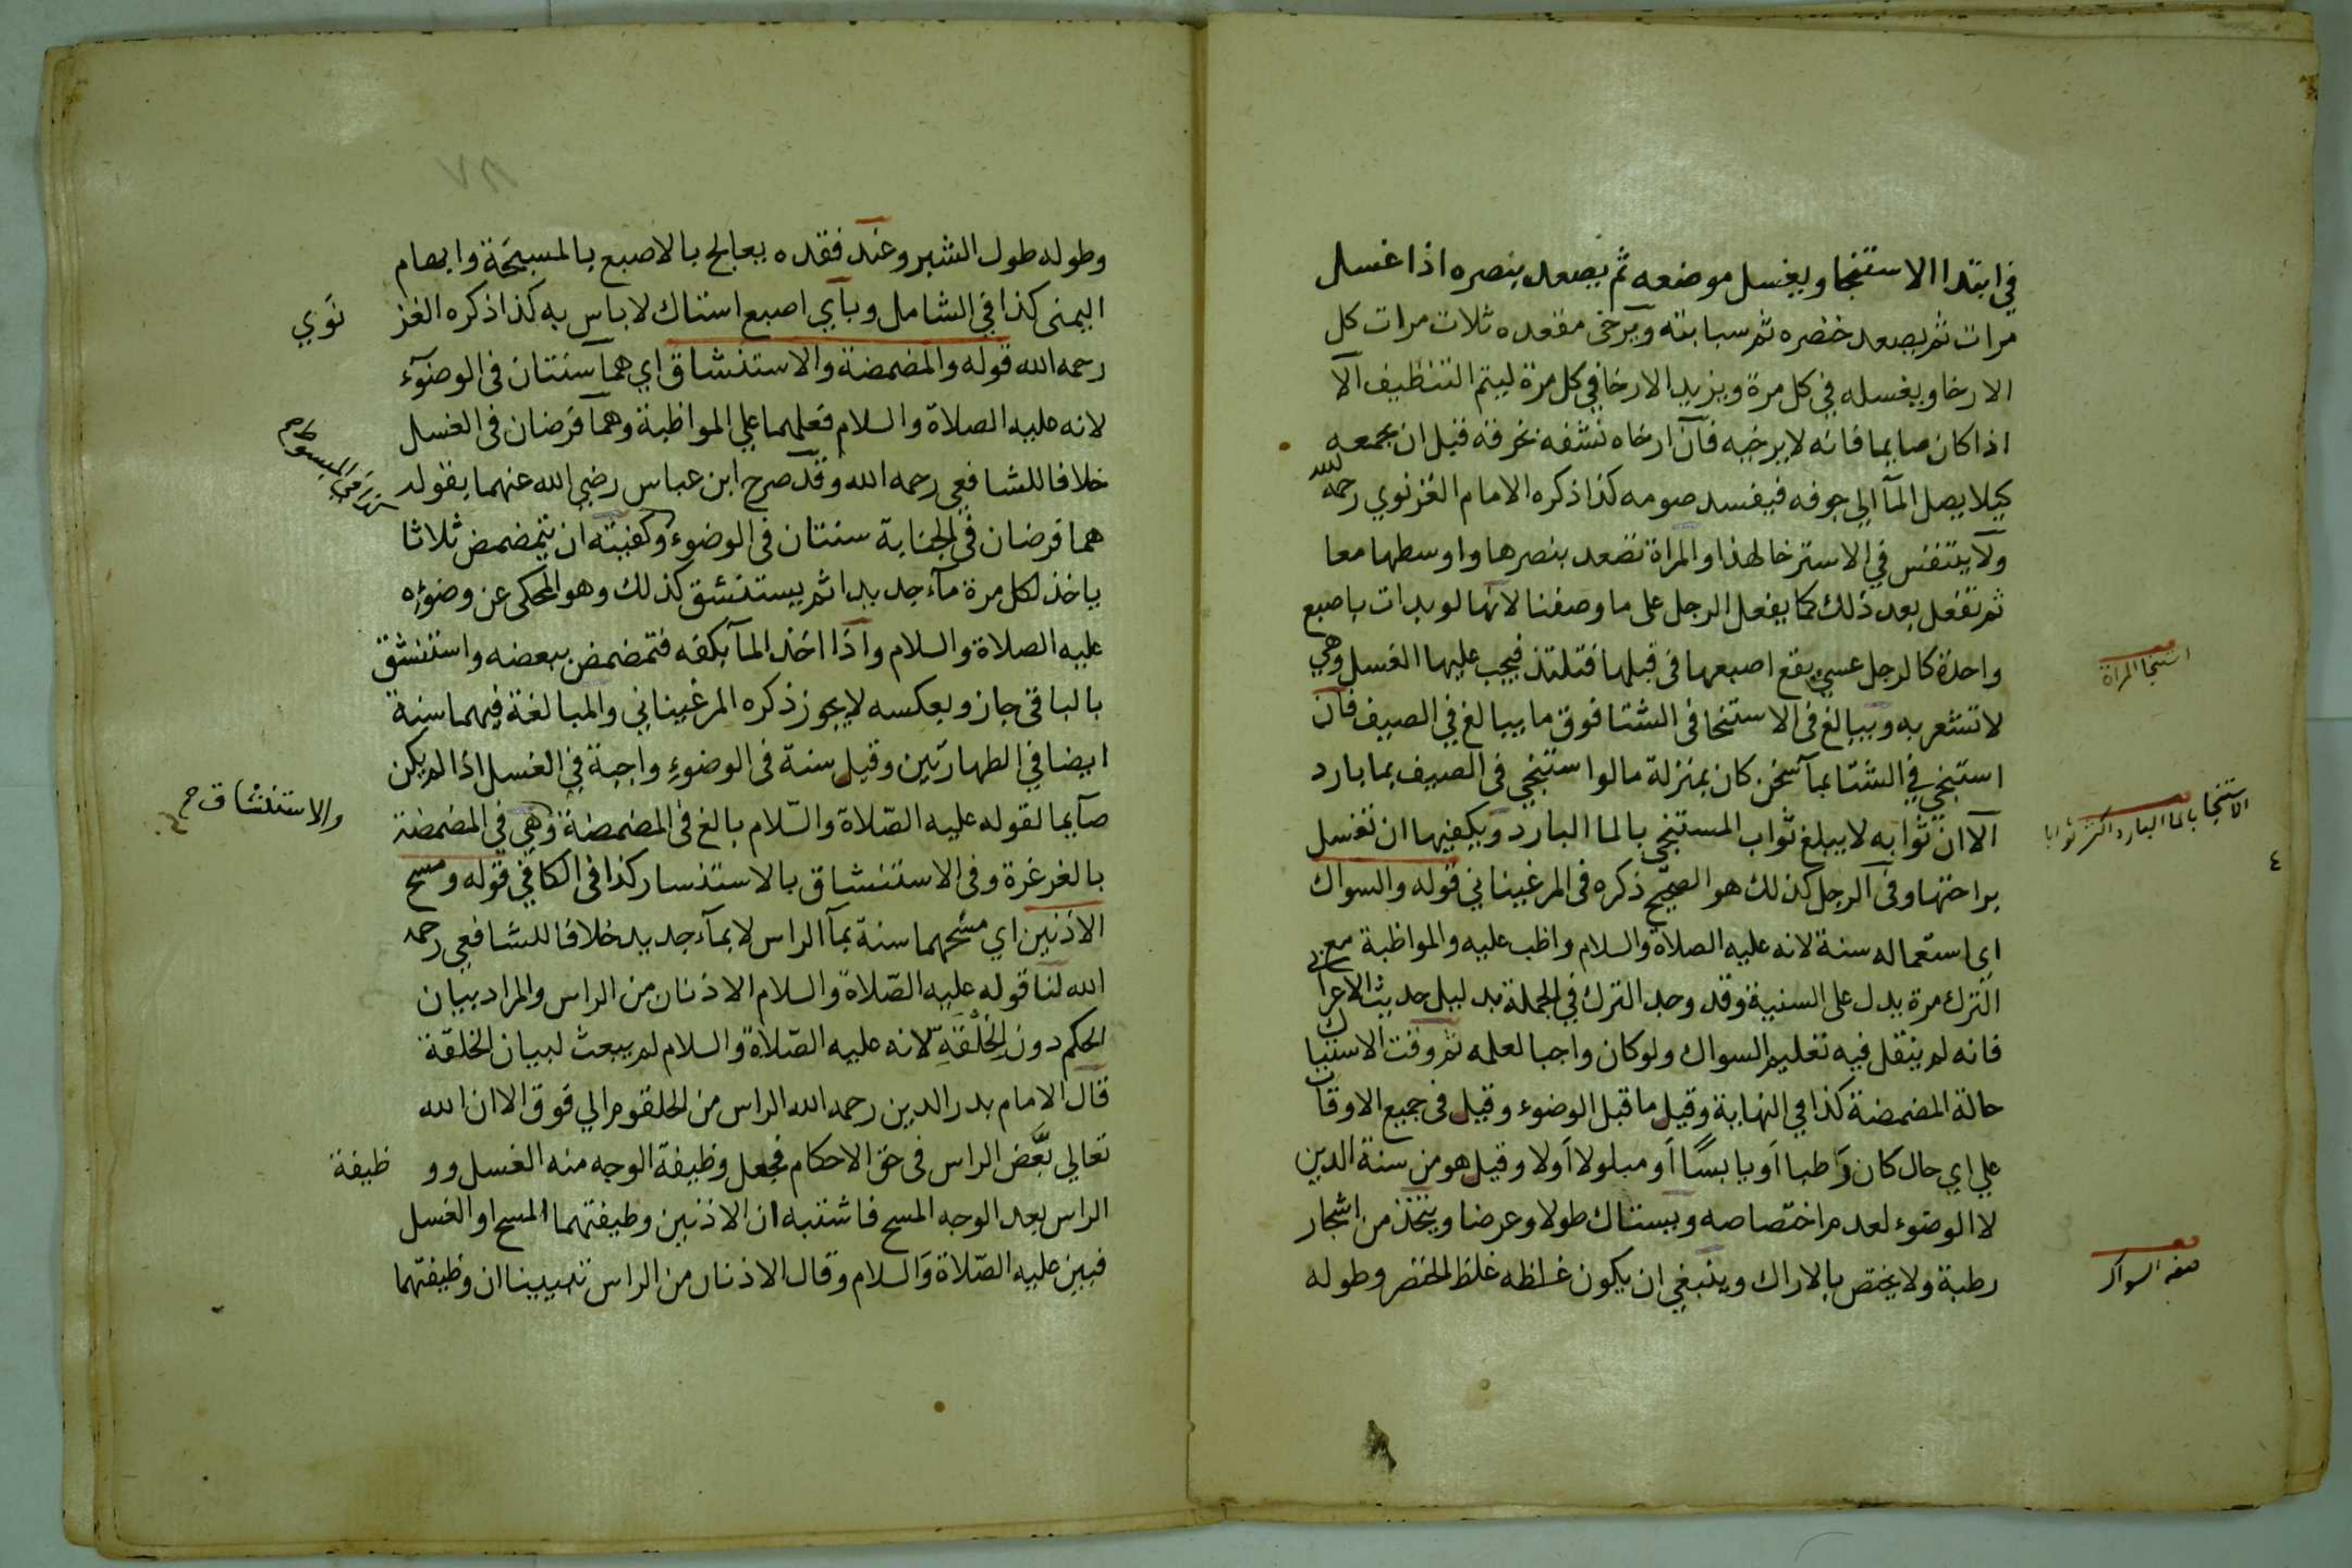 في ابتدا الاستنجا ويغسل موضعه ثم يصعد بنصره اذا غسل
مرات ثم يصعد خنصره ثم سبابته ويرخى مقعده ثلاث مرات كل
الارخا ويغسله في كل مرة ويزيد الارخا في كل مرة ليتم التنظيف الا
اذا كان صايما فانه لا يرخيه فان ارخاه نشفه بخرقة قبل ان يجمعه
كيلا يصل المآ الي جوفه فيفسد صومه كذا ذكره الامام الغزنوي رحمه الله
ولا يتنفس في الاسترخا لهذا والمراة تصعد بنصرها واوسطها معا
ثم تفعل بعد ذلك كما يفعل الرجل على ما وصفنا لانها لو بدات باصبع
واحدة كالرجل عسي يقع اصبعها في قبلها فتلتذ فيجب عليها الغسل وهي
استنجا المراة
لا تشعر به ويبالغ فى الاستنجا فى الشتا فوق ما يبالغ في الصيف فان
استنجي في الشتا بمآ سخن كان بمنزلة ما لو استنجي فى الصيف بما بارد
الا ان ثوابه لا يبلغ ثواب المستنجي بالما البارد ويكفيها ان تغسل
الاستنجا بالما البارد اكثر ثوابا
براحتها وفى الرجل كذلك هو الصحيح ذكره فى المرغيناني قوله والسواك
٤
اى استعماله سنة لانه عليه الصلاة والسلام واظب عليه والمواظبة مع
الترك مرة يدل على السنية وقد وجد الترك في الجملة بدليل حديث الاعرابي
فانه لم ينقل فيه تعليم السواك ولو كان واجبا لعلمه ثم وقت الاستياك
حالة المضمضة كذا في النهاية وقيل ما قبل الوضوء وقيل فى جميع الاوقات
علي اي حال كان رَاطبا اَو يابسًا اَو مبلولا اَولا وقيل هو من سنة الدين
لا الوضوء لعدم اختصاصه ويستاك طولا وعرضا ويتخذ من اشجار
رطبة ولا يختص بالاراك وينبغي ان يكون غلظه غلظ الخنصر وطوله
صفة السواك
٨٧
وطوله طول الشبر وعند فقده يعالج بالاصبع بالمسبحة وابهام
اليمنى كذا في الشامل وباي اصبع استاك لا باس به كذا ذكره الغز نَوي
رحمه الله قوله والمضمضة والاستنشاق اي هما سنتان فى الوضوٓء
لانه عليه الصلاة والسلام فعلهما علي المواظبة وهما فرضان فى الغسل
خلافا للشافعي رحمه الله وقد صرح ابن عباس رضي الله عنهما بقوله
هما فرضان في الجنابة سنتان فى الوضوء وكفيته ان يتمضمض ثلاثا
ياخذ لكل مرة مآء جديدا ثم يستنشق كذلك وهو المحكى عن وضوءِه
عليه الصلاة والسلام واذا اخذ المآ بكفه فتمضمض ببعضه واستنشق
بالباقى جاز وبعكسه لا يجوز ذكره المرغيناني والمبالغة فيهما سنة
ايضا في الطهارتين وقيل سنة فى الوضوءِ واجبة في الغسل اذا لم يكن
صآيما لقوله عليه الصّلاة والسّلام بالغ فى المضمضة وهي في المضمضة
والاستنشاق
بالغرغرة وفى الاستنشاق بالاستنسار كذا فى الكافي قوله ومسح
الاذنين اي مسْحهما سنة بمآ الراس لا بمآء جديد خلافا للشافعي رحمه
الله لنا قوله عليه الصّلاة والسلام الاذنان من الراس والمراد بيان
الحكم دون الخِلْقَةِ لانه عليه الصّلاة والسلام لم يبعث لبيان الخلقة
قال الامام بدر الدين رحمه الله الراس من الحلقوم الي فوق الا ان الله
تعالي بَعَّض الراس فى حق الاحكام فجعل وظيفة الوجه منه الغسل وو ظيفة
الراس بعد الوجه المسح فاشتبه ان الاذنين وظيفتهما المسح او الغسل
فبين عليه الصّلاة وَالسلام وقال الاذنان من الراس تبيينا ان وظيفتهما